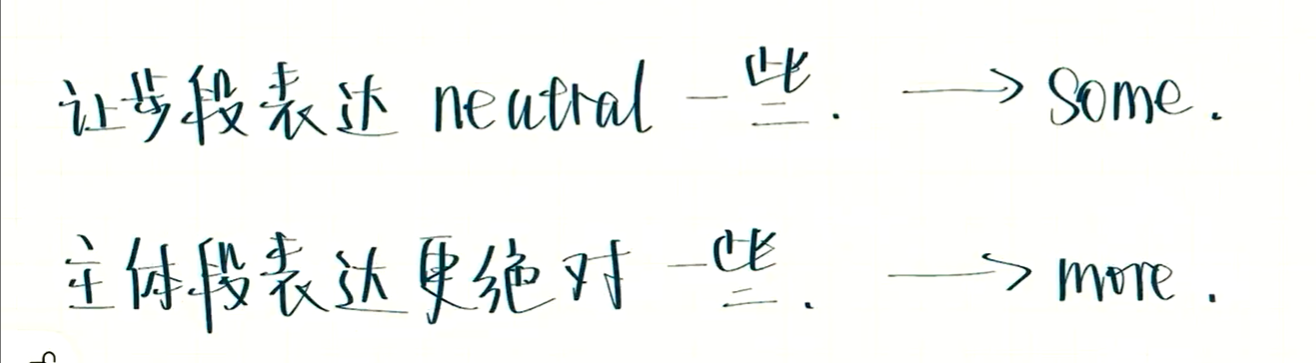 让步段表达 neutral 一些. → Some.
主体段表达更绝对 一些. → more.